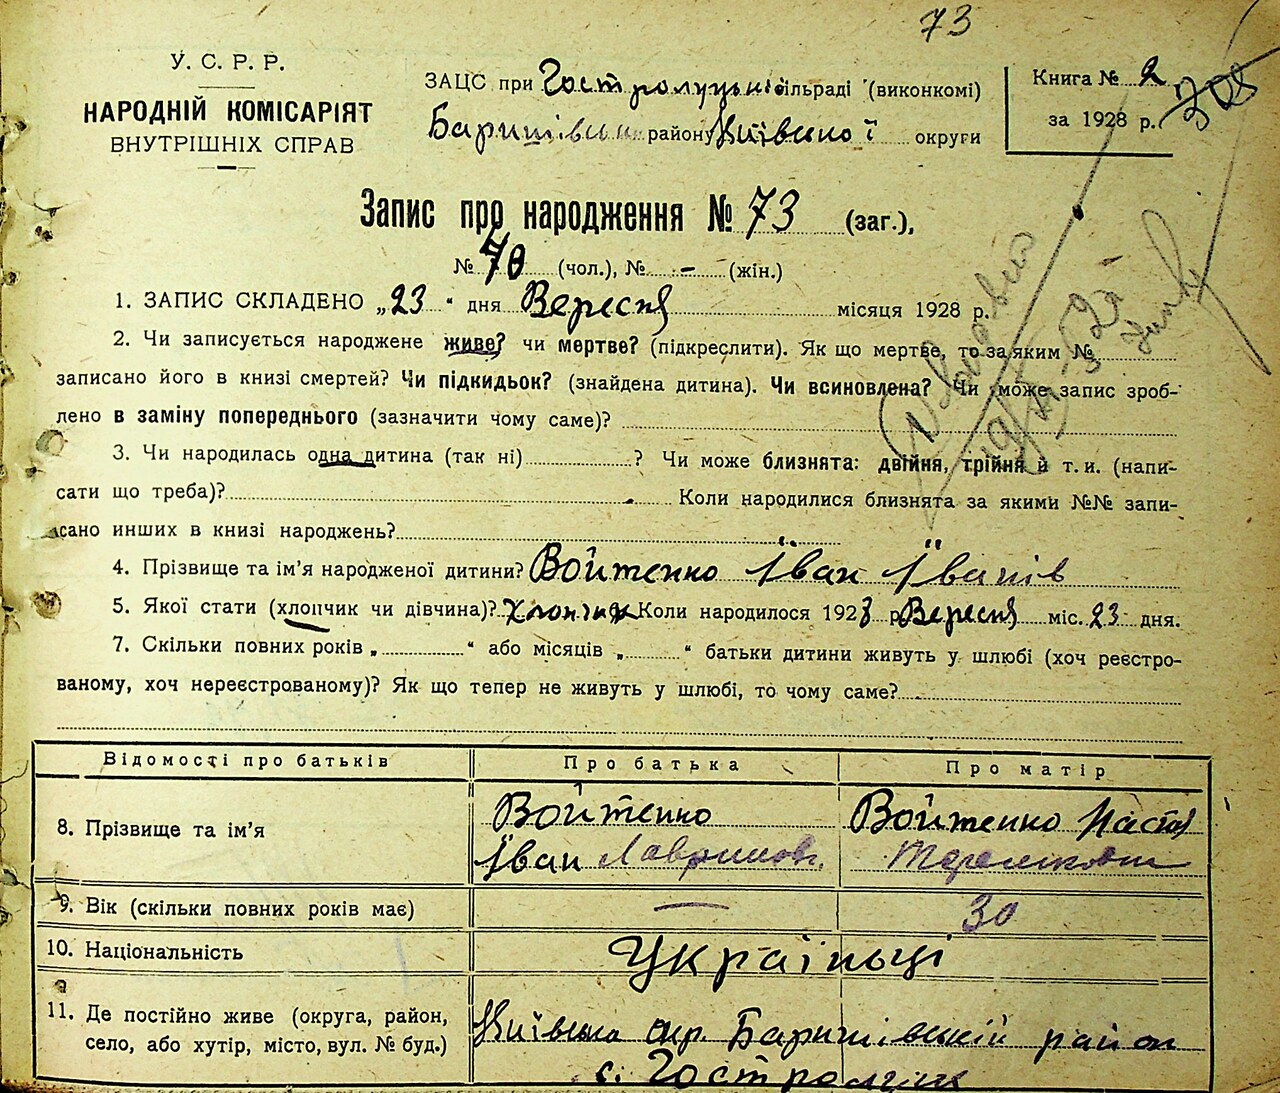 73
У. С. Р. Р.
НАРОДНІЙ КОМІСАРІЯТ
ВНУТРІШНІХ СПРАВ
ЗАЦС при Гостролуцькій сільраді (виконкомі)
Баришівськ району Київської округи
Книга № 2
за 1928 р.
Запис про народження № 73 (заг.),
№ 40 (чол.), № - (жін.)
1. ЗАПИС СКЛАДЕНО „23“ дня Вересня місяця 1928 р.
2. Чи записується народжене живе? чи мертве? (підкреслити). Як що мертве, то за яким №
записано його в книзі смертей? Чи підкидьок? (знайдена дитина). Чи всиновлена? Чи може запис зроб-
лено в заміну попереднього (зазначити чому саме)?
3. Чи народилась одна дитина (так ні) ? Чи може близнята: двійня, трійня й т. и. (напи-
сати що треба)? Коли народилися близнята за якими №№ запи-
сано инших в книзі народжень?
4. Прізвище та ім’я народженої дитини? Войтенко Іван Іванів
5. Якої стати (хлопчик чи дівчина)? Хлопчик Коли народилося 1928 р. Вересня міс. 23 дня.
7. Скільки повних років „ “ або місяців „ “ батьки дитини живуть у шлюбі (хоч реєстро-
ваному, хоч нереєстрованому)? Як що тепер не живуть у шлюбі, то чому саме?
Відомості про батьків Про батька Про матір
8. Прізвище та ім’я
Войтенко
Іван
Войтенко Настя
9. Вік (скільки повних років має) — 30
10. Національність Українці
11. Де постійно живе (округа, район,
село, або хутір, місто, вул. № буд.)
Київська окр. Баришівський район
с.